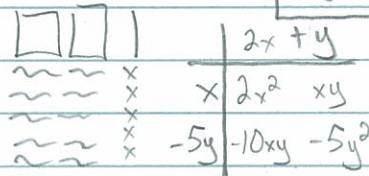 2x + y
x 2x² xy
-5y -10xy -5y²
x
x
x
x
x